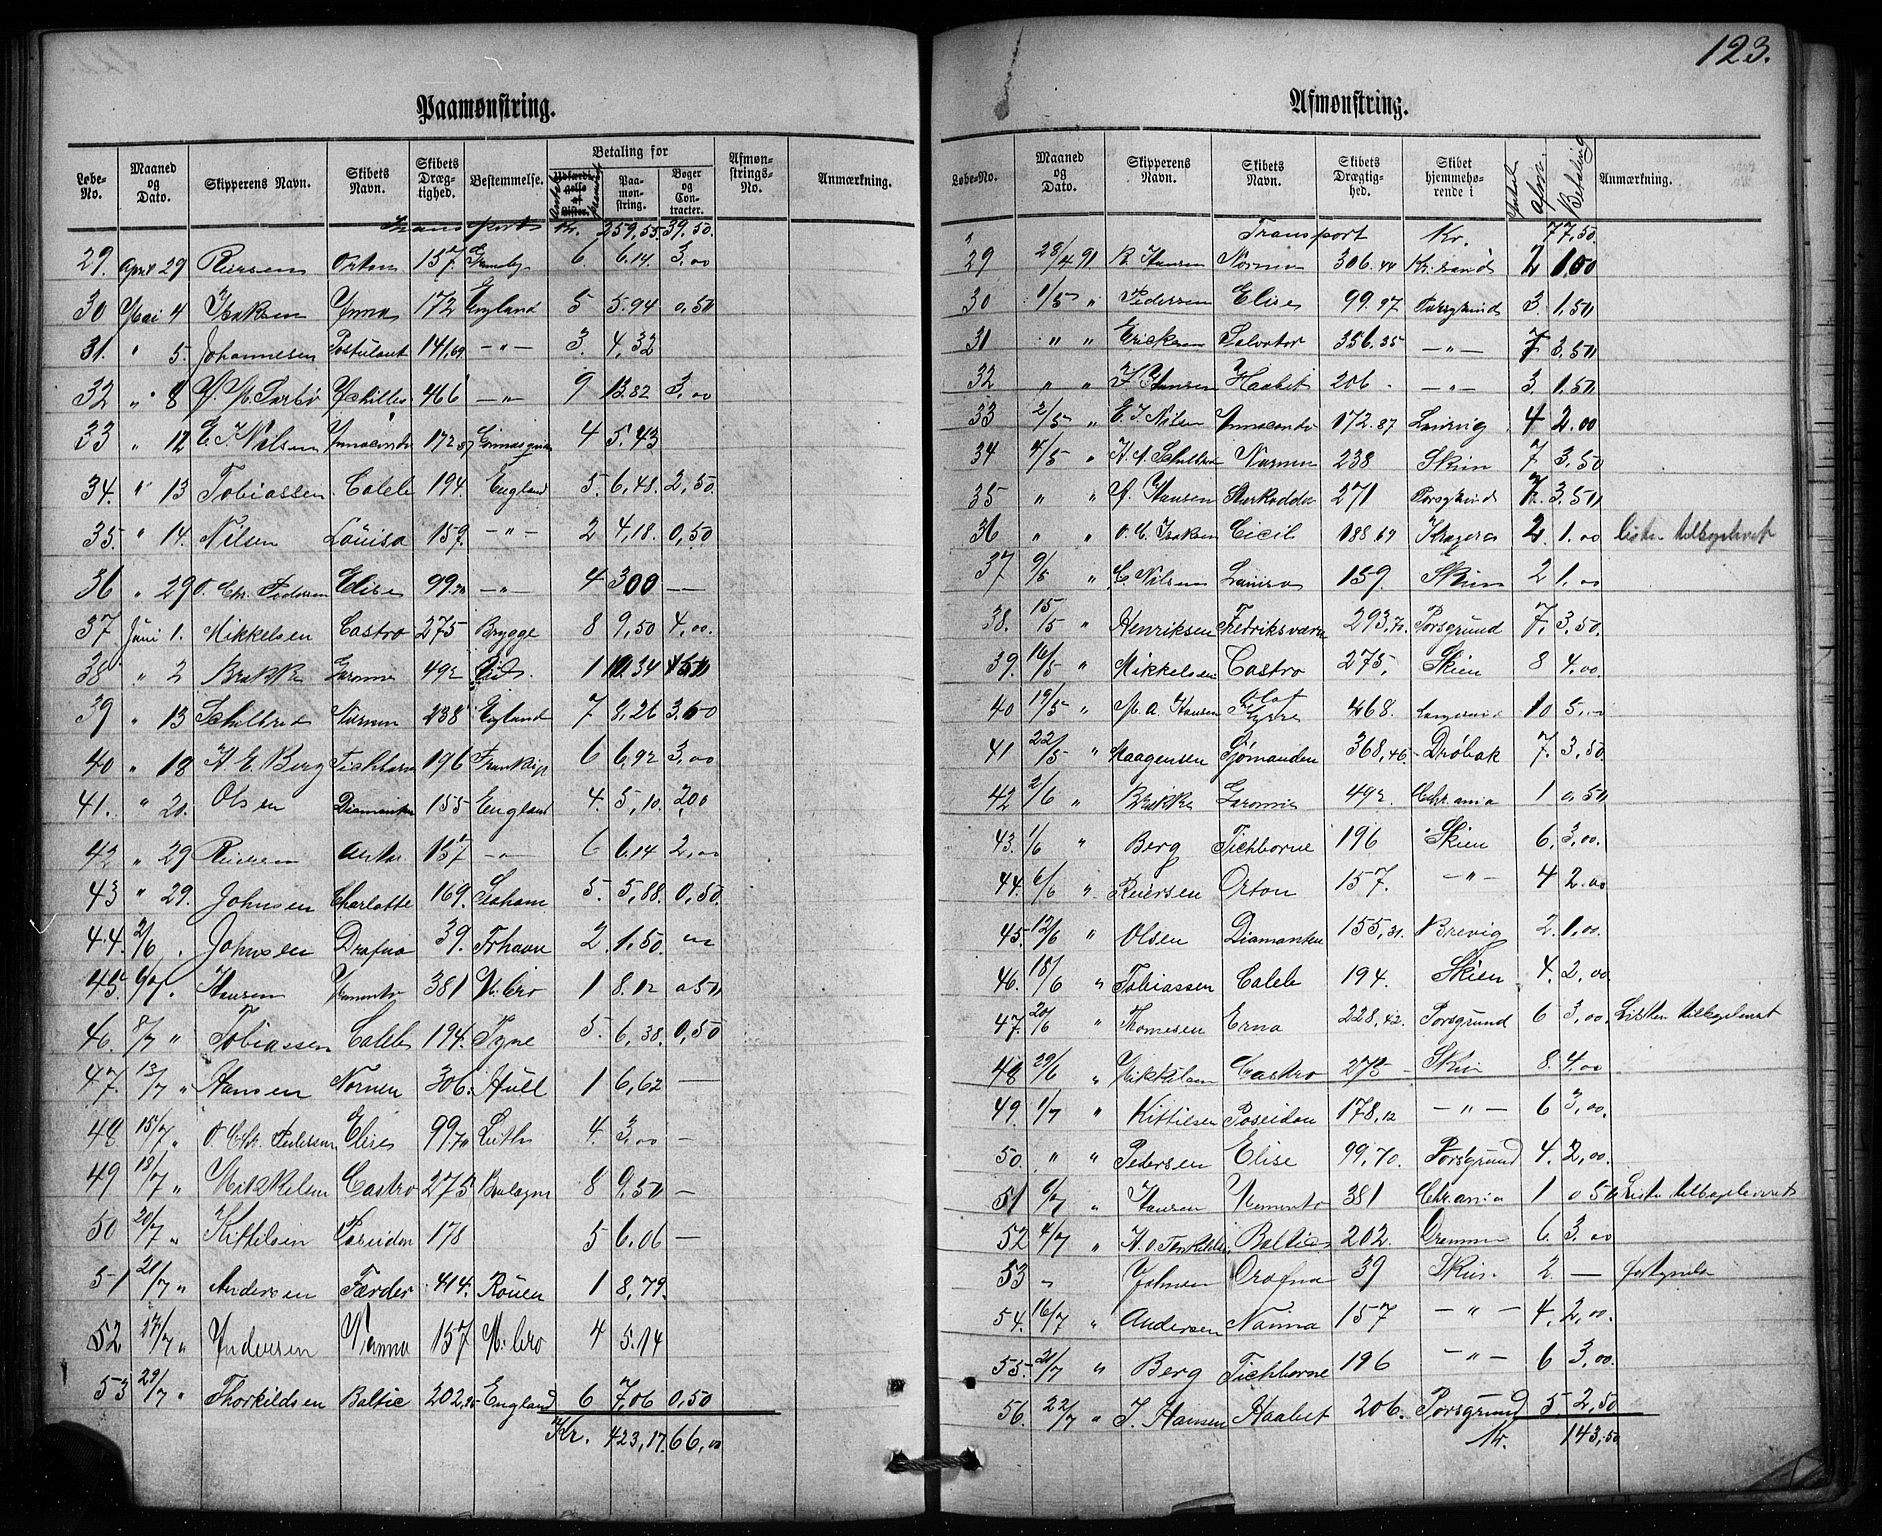 123.
Paamønstring.
Løbe-No. Maaned og Dato. Skipperens Navn. Skibets Navn. Skibets Dræg-tighed. Bestemmelse. Betaling for Paa-mon-string. Bøger og Con-tracter. Afmøn-strings-No. Anmærkning.
Transport Kr. 259,55 39,50.
29. April 29 Reiersen Orton 157 6. 6.14. 3,00
30 Mai 4 Isaksen Anna 172 England 5 5.94 0,50
31. " 5. Johannesen Postulant 141,69 -"- 3. 4,32
32 " 8 Achilles 466 -"- 9 13.82 3,00
33 " 12 E. T. Nilsen Innocento 172.87 4 5.43
34. " 13 Tobiassen Caleb 194. England 5. 6,48. 2,50.
35. " 14. Nilsen Louisa 159. -"- 2 4,18. 0,50
36 " 29 O. Chr. Pedersen Elise 99.70 -"- 4 300 —
37 Juni 1. Mikkelsen Castro 275 Brygge 8 9,50 4,00.
38 " 2 Brekke 492 1 10.34
39 " 13 Schilbred Nornen 238 England 7 8,26 3,00
40 " 18 H. E. Berg Tichborn 196 6 6,92 3,00
41. " 20. Olsen Diamanten 155 England 4. 5,10. 2,00
42 " 29 Reiersen Orton 157 -"- 6 6.14 2,00
43 " 29. Johnsen Charlotte 169. Seaham 5. 5,88. 0,50.
44. 2/6 . Johnsen Drafna 39. Frhavn 2. 1,50. "
45. 6/7. Hansen Memento 381 M.bro 1 8.12 0,50
46. 8/7 " Tobiassen Caleb 194. Tyne 5. 6,38. 0,50
47. 13/7 " Hansen Nornen 306. Hull 1 6,62 —
48 15/7 " O Chr. Pedersen Elise 99.70 Leith 4. 3,00 —
49 18/7 " Mikkelsen Castro 275 Boulogne 8 9,50 —
50 20/7 " Kittilsen Poseidon 178 5 6,06 —
51 21/7 " Andersen Færder 414. Rouen 1 8,79.
52 27/7 " Andersen Nanna 157 M.bro 4 5.14
53 29/7 " Thorkildsen Baltic 202,96 England 6 7,06 0,50
Kr. 423,17. 66,00
Afmønstring.
Løbe-No. Maaned og Dato. Skipperens Navn. Skibets Navn. Skibets Drægtig-hed. Skibet hjemmehø-rende i Antal Betaling Anmærkning.
Transport Kr. 77,50.
29 28/4 91 B. Hansen Nornen 306.44 Kr.sand 2 1.00
30 1/5 " Pedersen Elise 99.97 Porsgrund 3. 1,50
31 " " Ericksen Salvator 356.35 -"- 7 3,50
32 " " Hansen Haabet 206 . -"- 3. 1.50
33 2/5 " E. T. Nilsen Innocento 172.87 Laurvig 4 2.00
34 4/5 " H. A. Schilbred Nornen 238 Skien 7 3.50
35 " " Hansen Sterkodder 271 Porsgrund 7. 3.50
36 " " O. C. Isaksen Cicil 188.69 Kragerø 2. 1.00 Listen tilbageleveret
37 9/5 " C. Nilsen Louisa 159. Skien 2 1,00
38. 15/5 " Henriksen Fredriksværn 293,70 Porsgrund 7. 3,50.
39. 16/5 " Mikkelsen Castro 275. Skien 8 4,00.
40 19/5 " M. A. Hansen Olaf Kyrre 468. 10 5,00
41 22/5 " Maagensen Sjømanden 368,46. Drøbak 7. 3,50.
42 2/6 " Brekke 492. Chr.ania 1 0,50
43. 1/6 " Berg Tichborne 196 Skien 6. 3,00.
44. 6/6 " Reiersen Orton 157. -"- 4 2.00
45. 12/6 " Olsen Diamanten 155,31. Brevig 2. 1,00.
46. 18/6 " Tobiassen Caleb 194. Skien 4. 2,00
47. 20/6 " Thomesen Erna 228,42. Porsgrund 6 3,00. Listen tilbageleveret
48 29/6 " Mikkelsen Castro 275 - Skien 8. 4,00
49. 1/7 " Kittilsen Poseidon 178,12 -"- 6 3,00.
50. " " Pedersen Elise 99,70. Porsgrund 4. 2,00.
51 6/7 " Hansen Memento 381 Chr.ania 1 0,50 Liste tilbageleveret
52 4/7 " H. O. Torkildsen Baltic 202. Grimstad 6. 3.00
53 " Johnsen Drafna 39 Skien. 2. —
54. 16/7 " Andersen Nanna 157 -"- 4. 2,00.
55. 21/7 " Berg Tichborne 196 -"- 6 3,00.
56. 22/7 " J. Hansen Haabet 206. Porsgrund 5. 2,50
Kr. 143,50